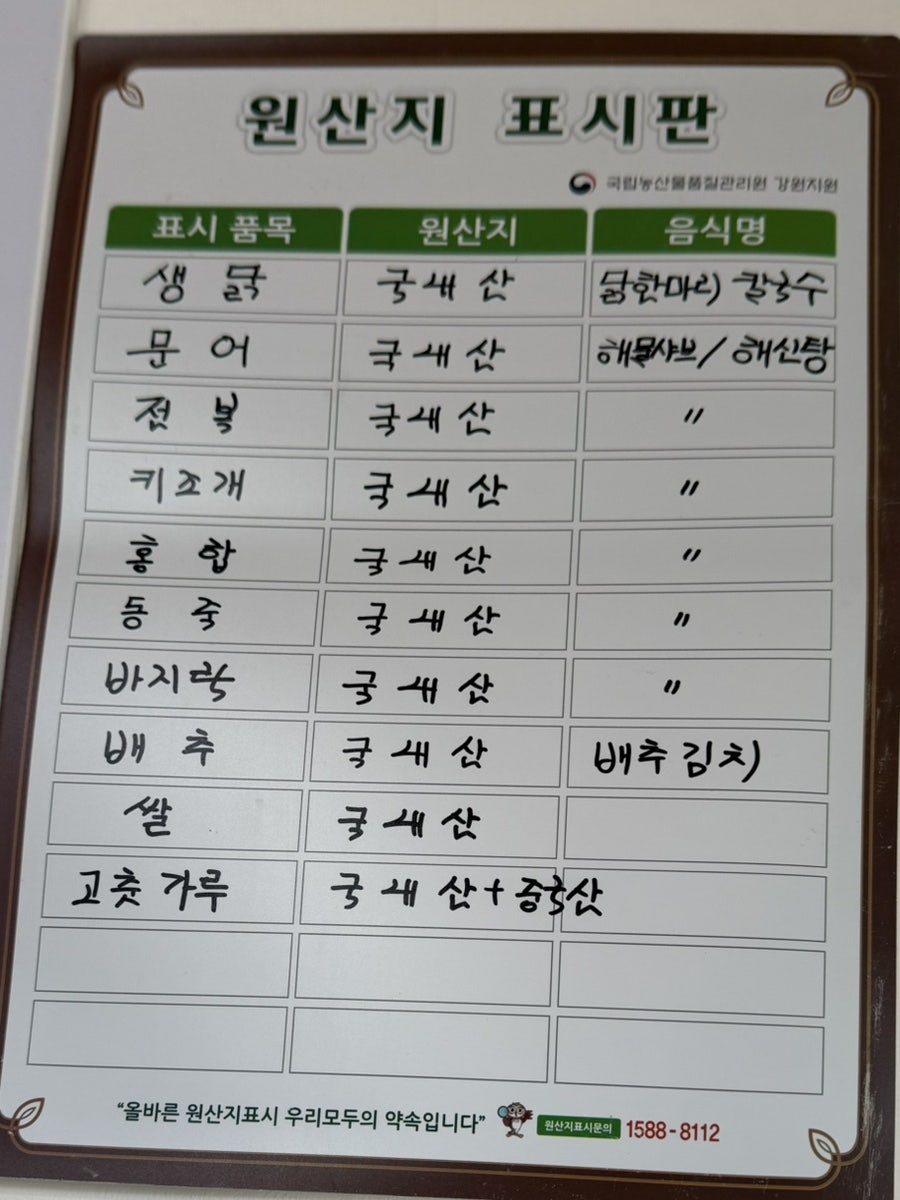 원산지 표시판
국립농산물품질관리원 강원지원
표시 품목 원산지 음식명
생 닭 국내산 닭한마리 칼국수
문어 국내산 해물샤브/해신탕
전복 국내산 〃
키조개 국내산 〃
홍합 국내산 〃
동죽 국내산 〃
바지락 국내산 〃
배추 국내산 배추김치
쌀 국내산
고춧가루 국내산+중국산
“올바른 원산지표시 우리모두의 약속입니다” 원산지표시문의 1588-8112